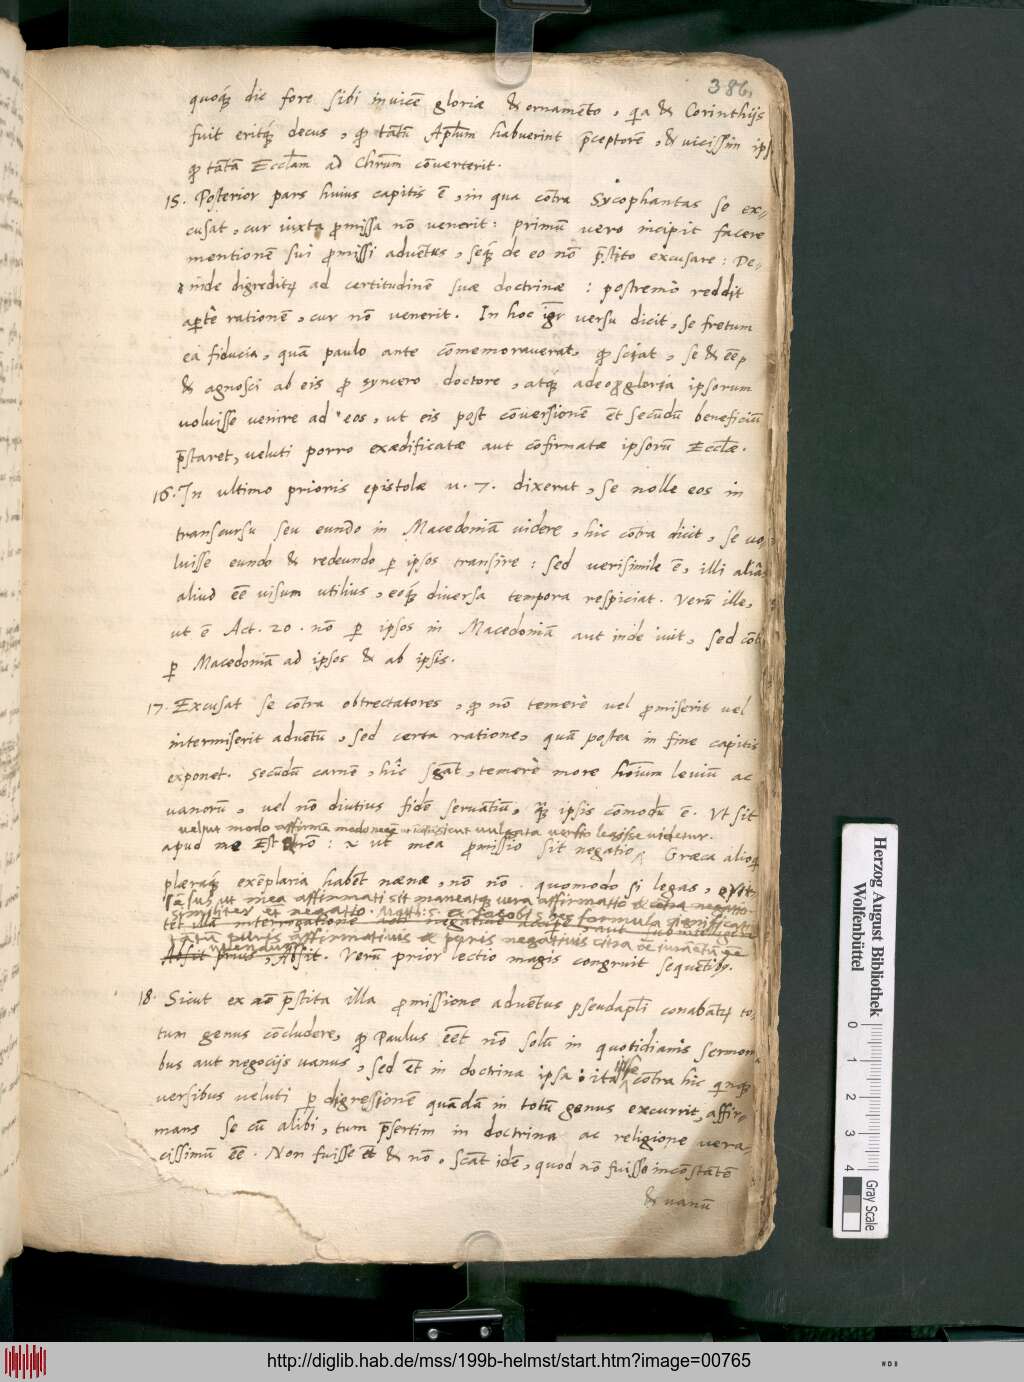 386.
quoq́ȝ die fore sibi inuicē gloriæ & ornamēto, q̄a & Corinthijs
fuit eritq́ȝ decus, qp tātū Apl̄um habuerint p̄ceptorē, & uicissim ips
qp tātā Eccl̄am ad Chrūm cōuerterit.
15. Posterior pars huius capitis ē, in qua cōtra Sycophantas se ex-
cusat, cur iuxta promissa nō venerit: primū vero incipit facere
mentionē sui promissi aduētus, seq́ȝ de eo nō p̄stito excusare: De-
inde digreditȝ ad certitudinē suæ doctrinæ: postremò reddit
apertè rationē, cur nō venerit. In hoc igr̄ versu dicit, se fretum
eâ fiducia, quā paulo ante cōmemorauerat, qp sciat, se & eē,
& agnosci ab eis pro syncero doctore, atq́ȝ adeo pro gloria ipsorum
uoluisse uenire ad eos, ut eis post cōuersionē ēt secūdū beneficiū
p̄staret, veluti porro exædificatæ aut cōfirmatæ ipsorū Eccl̄æ.
16. In ultimo prioris epistolæ u. 7. dixerat, se nolle eos in
transcursu seu eundo in Macedoniā uidere, hic cōtra dicit, se uo-
luisse eundo & redeundo p ipsos transire: sed verisimile ē, illi aliâs
aliud eē uisum utilius, eoq́ȝ diuersa tempora respiciat. Verū ille,
ut ē Act. 20. nō p ipsos in Macedoniā aut inde iuit, sed cōt
p Macedoniā ad ipsos & ab ipsis.
17. Excusat se cōtra obtrectatores, qp nō temerè uel promiserit uel
intermiserit aduētū, sed certa ratione, quā postea in fine capitis
exponet. Secūdū carnē, hic sgāt, temerè more hoīum leuiū ac
uanorū, uel nō diutius fidē seruātiū, q̄ȝ ipsis cōmodū ē. Vt sit
veluti modo affirmē modo negē vulgata versio legisse videtur.
apud me Est et nō: ut mea promissio sit negatio, Græca alioq̄
plæraq́ȝ exēplaria habēt næ næ, nō nō. quomodo si legas,
ut mea affirmatio sit maneatq́ȝ vera affirmatio & negatio
similiter et negatio. Matth. 5. et Iacobi 5 hæc formula significat
tātū puris affirmatiuis & puris negatiuis citra oē iuramētū
Absit prius, Absit. Verū prior lectio magis congruit sequētibȝ.
18. Sicut ex nō p̄stita illa promissione aduētus pseudapl̄i conabātȝ to-
tum genus cōcludere, qp Paulus eēt nō solū in quotidianis sermoni
bus aut negocijs uanus, sed ēt in doctrina ipsa: ita ipse cōtra hic q̄nq́ȝ
versibus veluti p digressionē quādā in totū genus excurrit, affir-
mans se cū alibi, tum p̄sertim in doctrina ac religione uera-
cissimū eē. Non fuisse ēt & nō, sgāt idē, quod nō fuisse incōstātē
& uanū
Herzog August Bibliothek
Wolfenbüttel
0 1 2 3 4
Gray Scale
http://diglib.hab.de/mss/199b-helmst/start.htm?image=00765
WDB